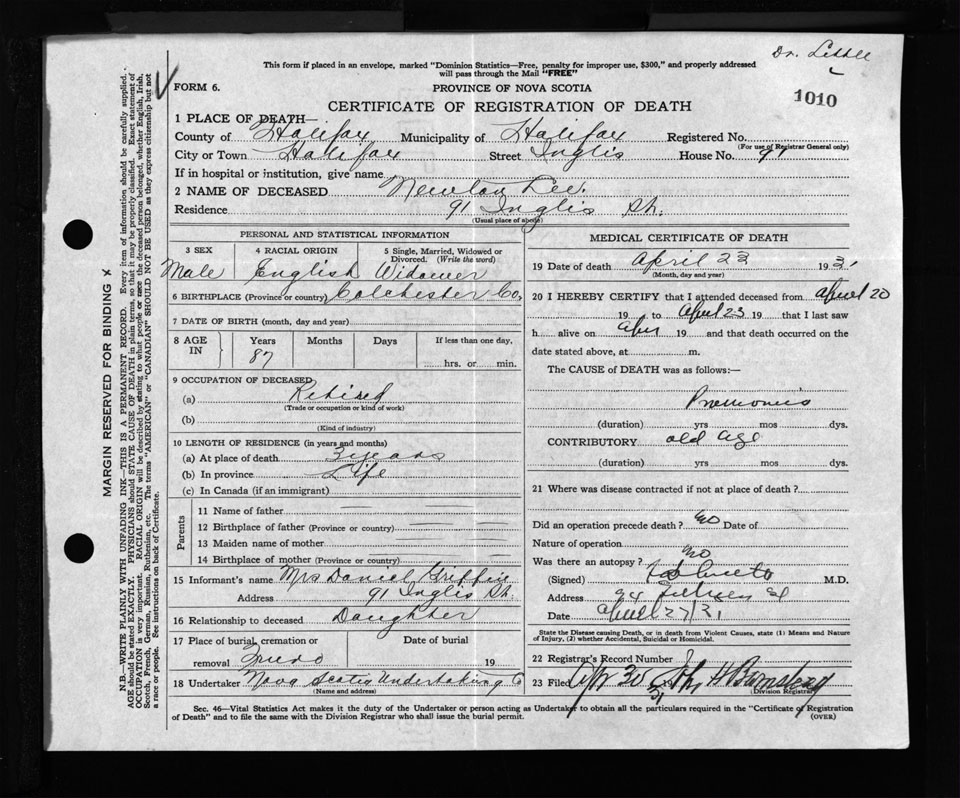 Dr.
This form if placed in an envelope, marked "Dominion Statistics—Free, penalty for improper use, $300," and properly addressed
will pass through the Mail "FREE"
FORM 6. PROVINCE OF NOVA SCOTIA
1010
CERTIFICATE OF REGISTRATION OF DEATH
1 PLACE OF DEATH—
County of Halifax Municipality of Halifax Registered No.
(For use of Registrar General only)
City or Town Halifax Street Inglis House No. 91
If in hospital or institution, give name
2 NAME OF DECEASED Newton Lee.
Residence 91 Inglis St.
(Usual place of abode)
PERSONAL AND STATISTICAL INFORMATION
3 SEX 4 RACIAL ORIGIN 5 Single, Married, Widowed or
Divorced. (Write the word)
Male English Widower
6 BIRTHPLACE (Province or country) Colchester Co.
7 DATE OF BIRTH (month, day and year)
8 AGE IN Years Months Days If less than one day,
87 hrs. or min.
9 OCCUPATION OF DECEASED
(a) Retired
(Trade or occupation or kind of work)
(b)
(Kind of industry)
10 LENGTH OF RESIDENCE (in years and months)
(a) At place of death 3 years
(b) In province Life
(c) In Canada (if an immigrant)
Parents
11 Name of father
12 Birthplace of father (Province or country)
13 Maiden name of mother
14 Birthplace of mother (Province or country)
15 Informant's name Mrs Daniel Griffin
Address 91 Inglis St.
16 Relationship to deceased Daughter
17 Place of burial, cremation or Date of burial
removal Truro 19
18 Undertaker Nova Scotia Undertaking Co
(Name and address)
MEDICAL CERTIFICATE OF DEATH
19 Date of death April 23 1931
(Month, day and year)
20 I HEREBY CERTIFY that I attended deceased from April 20
19 to April 23 19 that I last saw
h alive on Apr 19 and that death occurred on the
date stated above, at m.
The CAUSE of DEATH was as follows:—
Pneumonia
(duration) yrs mos dys.
CONTRIBUTORY old age
(duration) yrs mos dys.
21 Where was disease contracted if not at place of death?
Did an operation precede death? no Date of
Nature of operation
Was there an autopsy? no
(Signed) M.D.
Address 94
Date April 27/31
State the Disease causing Death, or in death from Violent Causes, state (1) Means and Nature
of Injury, (2) whether Accidental, Suicidal or Homicidal.
22 Registrar's Record Number
23 Filed Apr 30 31
(Division Registrar)
Sec. 46—Vital Statistics Act makes it the duty of the Undertaker or person acting as Undertaker to obtain all the particulars required in the "Certificate of Registration
of Death" and to file the same with the Division Registrar who shall issue the burial permit. (OVER)
MARGIN RESERVED FOR BINDING
N.B.—WRITE PLAINLY WITH UNFADING INK—THIS IS A PERMANENT RECORD. Every item of information should be carefully supplied.
AGE should be stated EXACTLY. PHYSICIANS should STATE CAUSE OF DEATH in plain terms, so that it may be properly classified. Exact statement of
OCCUPATION is very important. RACIAL ORIGIN will be described by stating to what people or race the deceased person belonged, whether English, Irish,
Scotch, French, German, Russian, Ruthenian, etc. The terms "AMERICAN" or "CANADIAN" SHOULD NOT BE USED as they express citizenship but not
a race or people. See instructions on back of Certificate.